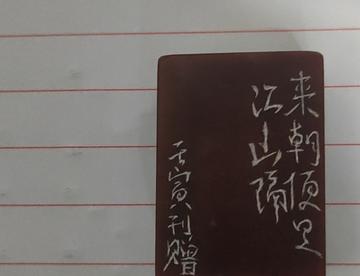 来朝便是
江山隔
壬寅刊赠